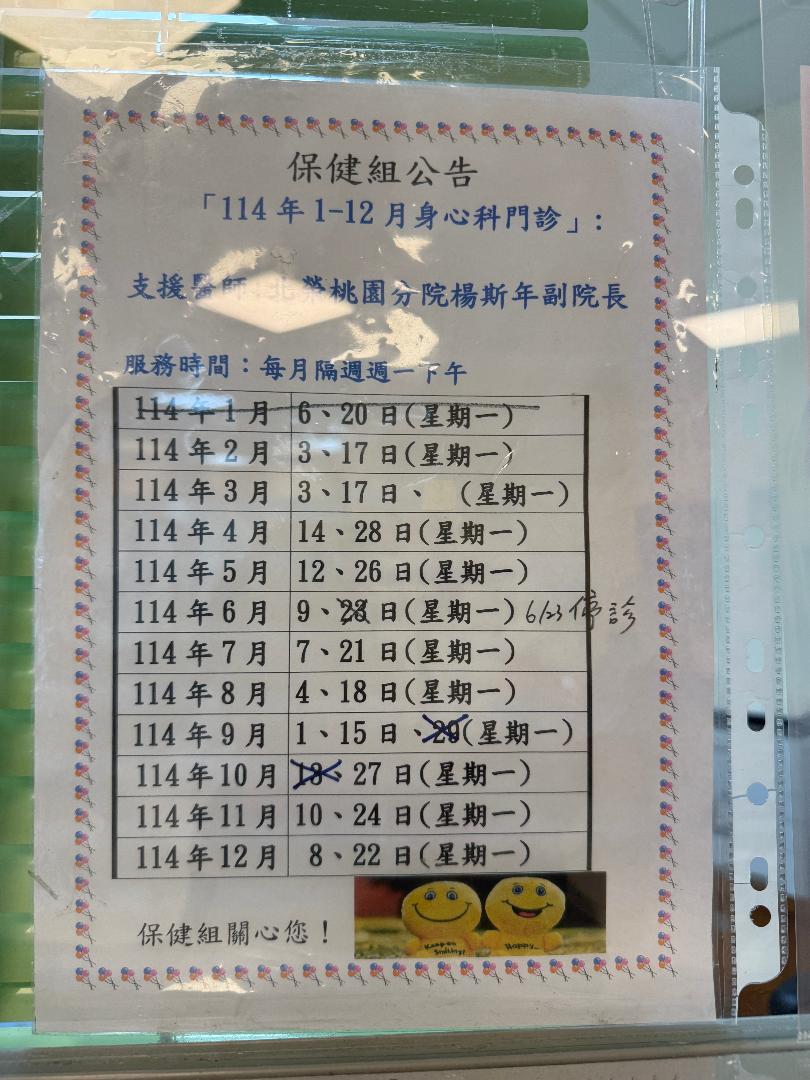 保健組公告
「114年1-12月身心科門診」:
支援醫師:北榮桃園分院楊斯年副院長
服務時間:每月隔週週一下午
114年1月 6、20日(星期一)
114年2月 3、17日(星期一)
114年3月 3、17日、 (星期一)
114年4月 14、28日(星期一)
114年5月 12、26日(星期一)
114年6月 9、23日(星期一) 6/23停診
114年7月 7、21日(星期一)
114年8月 4、18日(星期一)
114年9月 1、15日、29(星期一)
114年10月 13、27日(星期一)
114年11月 10、24日(星期一)
114年12月 8、22日(星期一)
保健組關心您!
Keep on Smiling!
Happy...